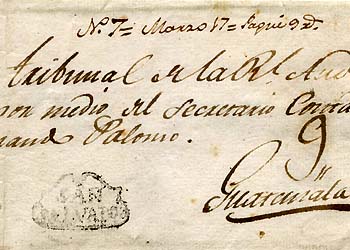 N.º 7= Marzo 17= Pagué 9 r.s
Tribunal de la Rl. Aud
por medio del Secretario Contra
nand Palomo.
9
Guatemala
SAN
SALVADOR